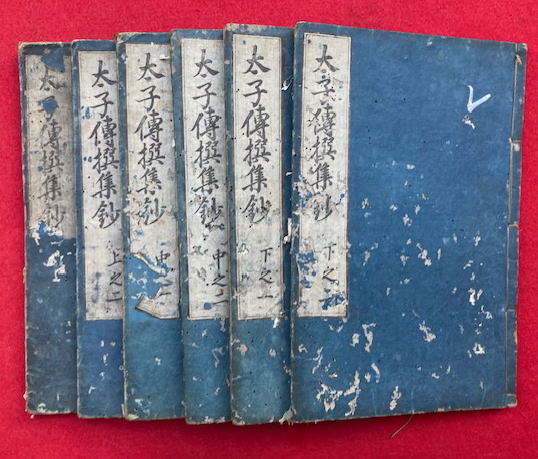 太子傳撰集鈔 下之
太子傳撰集鈔 下之一
太子傳撰集鈔 中之二
太子傳撰集鈔 中
太子傳撰集鈔 上之
太子傳撰集鈔